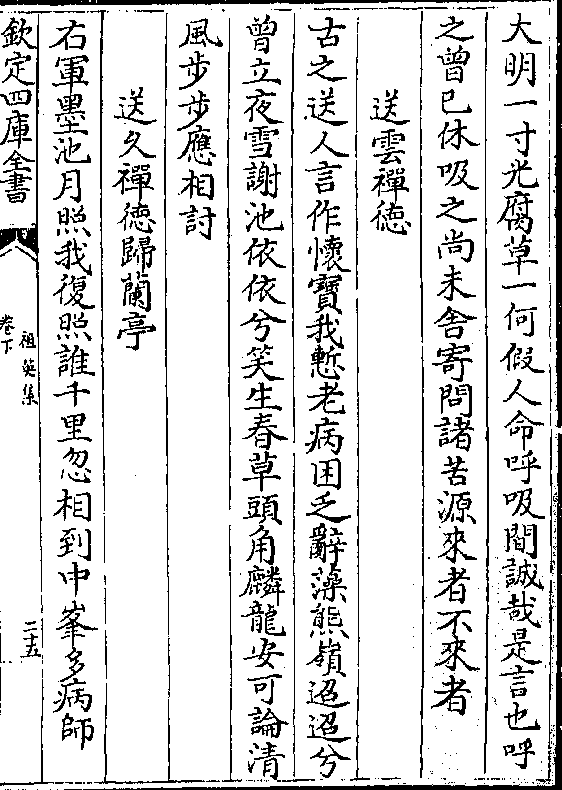 大明一寸光腐草一何假人命呼吸間誠哉是言也呼
之曾已休吸之尚未舍寄問諸苦源來者不來者
送雲禪徳
古之送人言作懷寶我慙老病困乏辭藻熊嶺迢迢兮
曾立夜雪謝池依依兮笑生春草頭角麟龍安可論清
風步步應相討
送久禪徳歸蘭亭
右軍墨池月照我復照誰千里忽相到中峯多病師
欽定四庫全書
祖英集
卷下
二十五